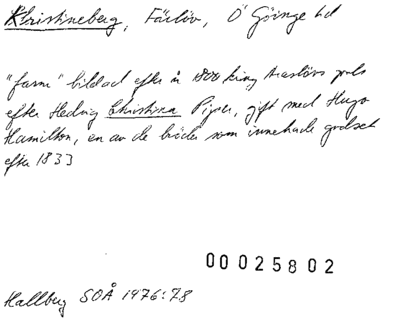 Kristineberg, Färlöv, Ö Göinge hd
"farm" bildad efter år 1800 kring Araslövs gods
efter Hedvig Christina Piper, gift med Hugo
Hamilton, en av de bröder som innehade godset
efter 1833
00025802
Hallberg SOÅ 1976:78